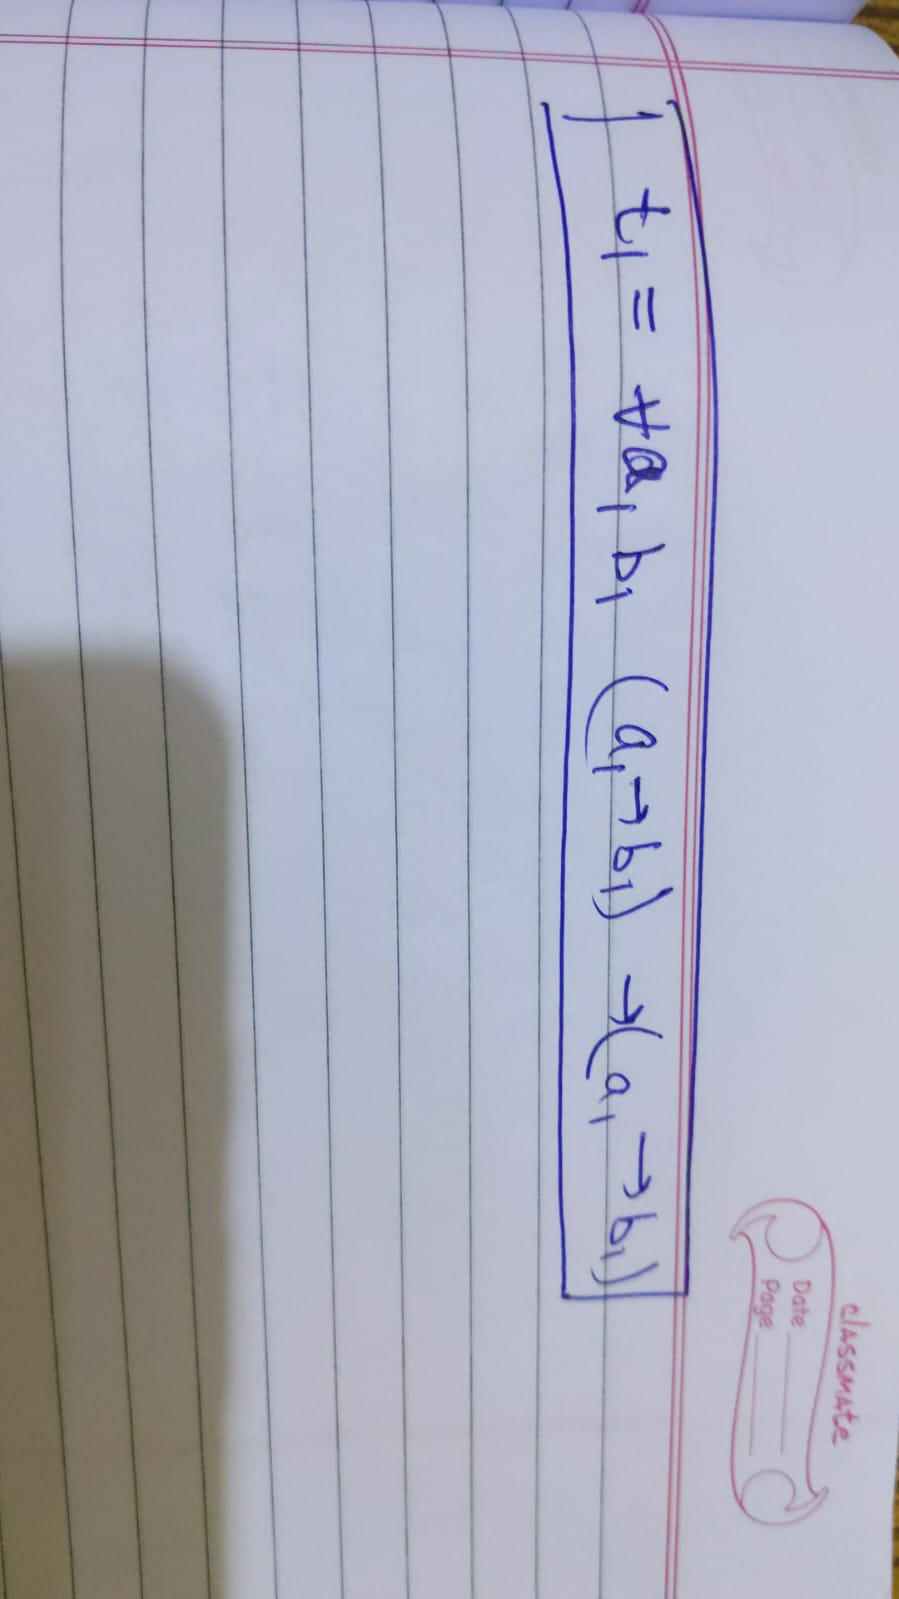 classmate
Date
Page
t₁ = ∀a₁ b₁ (a₁→b₁) →(a₁ → b₁)